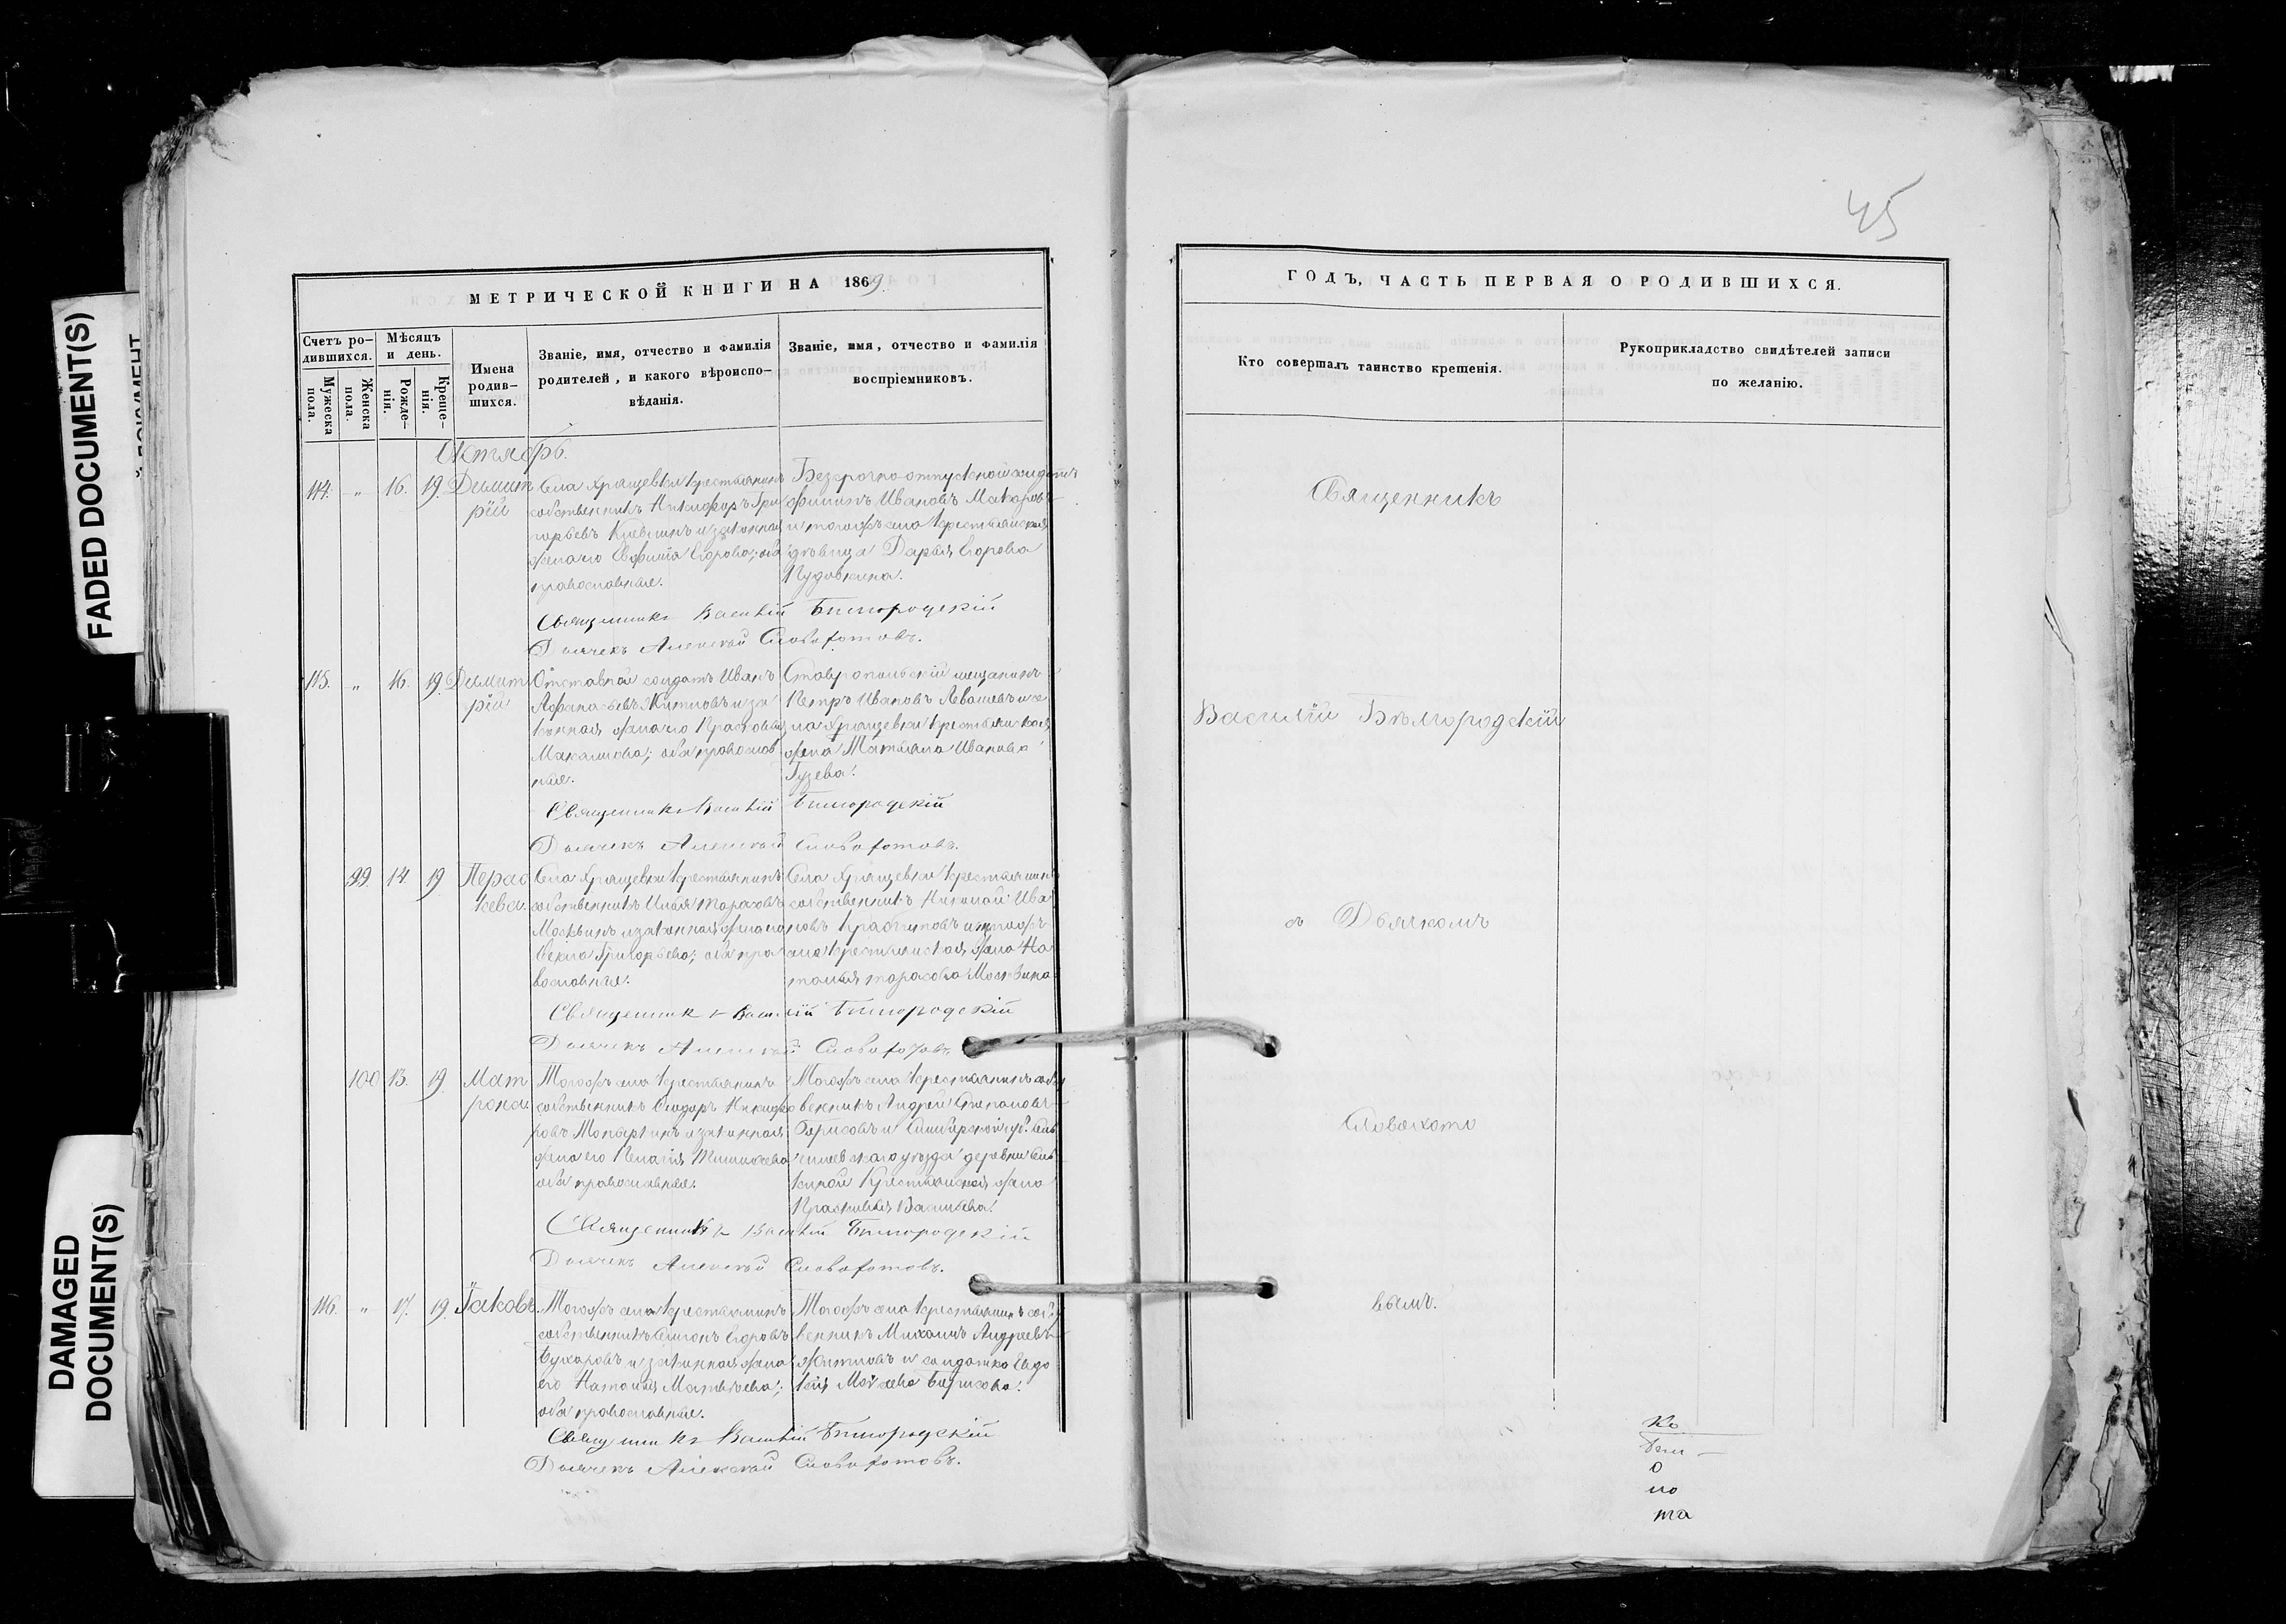 45
МЕТРИЧЕСКОЙ КНИГИ НА 1869
ГОДЪ, ЧАСТЬ ПЕРВАЯ О РОДИВШИХСЯ.
Счетъ ро-
дившихся.
Мужеска
пола.
Женска
пола.
Мѣсяцъ
и день.
Рожде-
нія.
Креще-
нія.
Имена
родив-
шихся.
Званіе, имя, отчество и фамилія
родителей, и какого вѣроиспо-
вѣданія.
Званіе, имя, отчество и фамилія
воспріемниковъ.
Кто совершалъ таинство крещенія.
Рукоприкладство свидѣтелей записи
по желанію.
Октябрь.
114. " 16. 19. Димит
рій
Села Хрящевки крестьянинъ
собственникъ Никифоръ Гри
горьевъ и законная
жена его Евфимія Егорова; оба
православные.
Безсрочно отпускной солдатъ
Филипъ Ивановъ Макаровъ
и тогожъ села крестьянская
дѣвица Дарья Егорова
Пудовкина.
Священникъ Василій Бѣлгородскій
Дьячекъ Алексѣй Словохотовъ.
115. " 16. 19. Димит
рій
Отставной солдатъ Иванъ
Афанасьевъ Житловъ и за
конная жена его Прасковья
Максимова; оба православ
ные.
Ставропольскій мещанинъ
Петръ Ивановъ Левашевъ и се
ла Хрящевки крестьянская
жена Татьяна Иванова
Гузева.
Священникъ Василій Бѣлгородскій
Дьячекъ Алексѣй Словохотовъ.
99. 14. 19 Парас
кева.
Села Хрящевки крестьянинъ
собственникъ Илья Тарасовъ
Москвинъ и законная жена его
Ѳекла Григорьева; оба пра
вославные.
Села Хрящевки крестьянинъ
собственникъ Николай Ива
новъ и тогожъ
села крестьянская жена На
талья Тарасова Москвина
Священникъ Василій Бѣлгородскій
Дьячекъ Алексѣй Словохотовъ
100 13. 19. Мат
рона.
Тогожъ села крестьянинъ
собственникъ Ѳедоръ Никифо
ровъ и законная
жена его Пелагія
оба православные.
Тогожъ села крестьянинъ соб
венникъ Андрей Степановъ
Борисовъ и Симбирской губ. Сен
гилеевскаго уѣзда деревни
крестьянская жена
Прасковья Васильева.
Священникъ Василій Бѣлгородскій
Дьячекъ Алексѣй Словохотовъ.
116. " 17. 19. Іаковъ.
Тогожъ села крестьянинъ
собственникъ Симонъ Егоровъ
Бухаровъ и законная жена
его Наталья Матвѣева;
оба православные.
Тогожъ села крестьянинъ соб
венникъ Михаилъ Андреевъ
Житловъ и солдатка Евдо
кія Борисова.
Священникъ Василій Бѣлгородскій
Дьячекъ Алексѣй Словохотовъ.
Священникъ
Василій Бѣлгородскій
съ Дьячкомъ
Словохото
вымъ.
Ко
о
по
та
FADED DOCUMENT(S)
DAMAGED
DOCUMENT(S)